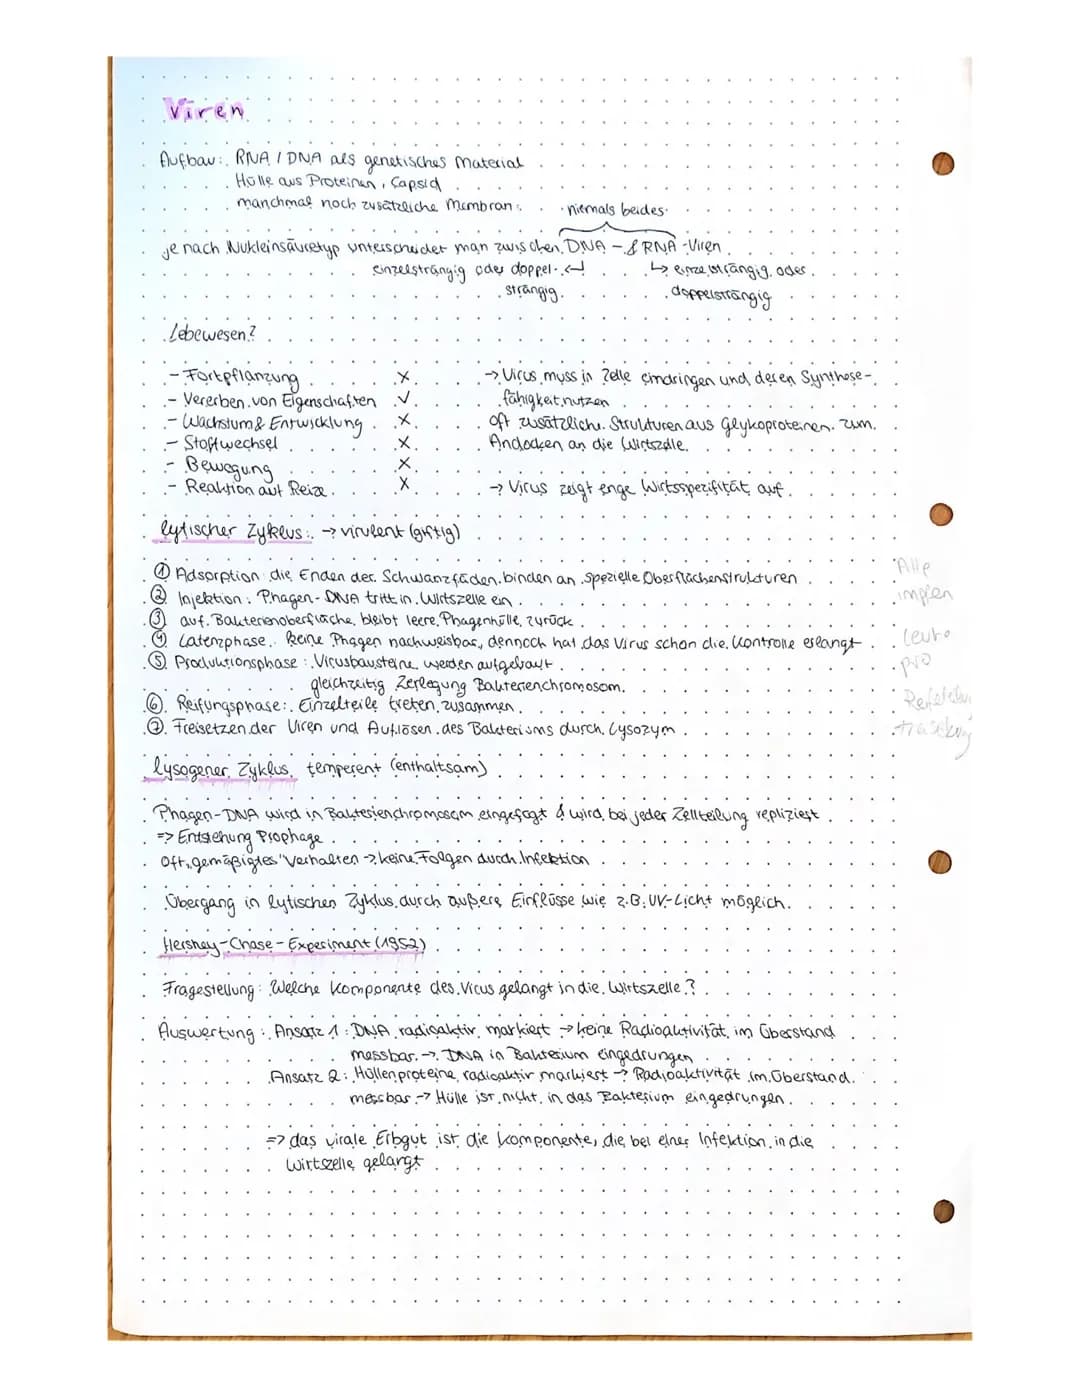 Viren
Aufbau: RNA / DNA als genetisches Material
Hülle aus Proteinen, Capsid
manchmal noch zusätzliche Membran
niemals beides
je nach Nukleinsäuretyp unterscheidet man zwischen DNA - & RNA - Viren
einzelsträngig oder doppel- ↵ ↳ einzelsträngig oder
strängig. doppelsträngig
Lebewesen?
- Fortpflanzung x → Virus muss in Zelle eindringen und deren Synthese-
- Vererben von Eigenschaften ✓ fähigkeit nutzen
- Wachstum & Entwicklung x oft zusätzliche Strukturen aus Glykoproteinen zum
- Stoffwechsel x Andocken an die Wirtszelle.
- Bewegung x
- Reaktion auf Reize x → Virus zeigt enge Wirtsspezifität auf.
lytischer Zyklus: → virulent (giftig)
① Adsorption die Enden der Schwanzfäden binden an spezielle Oberflächenstrukturen
② Injektion: Phagen-DNA tritt in Wirtszelle ein
③ auf Bakterienoberfläche bleibt leere Phagenhülle zurück
④ Latenzphase keine Phagen nachweisbar, dennoch hat das Virus schon die Kontrolle erlangt
⑤ Produktionsphase: Virusbausteine werden aufgebaut
gleichzeitig Zerlegung Bakterienchromosom.
⑥ Reifungsphase: Einzelteile treten zusammen
⑦ Freisetzen der Viren und Auflösen des Bakteriums durch Lysozym
Alle
impfen
Leute
pro
lysogener Zyklus, temperent (enthaltsam)
Phagen-DNA wird in Bakterienchromosom eingefügt & wird bei jeder Zellteilung repliziert
=> Entstehung Prophage
Oft "gemäßigtes" Verhalten → keine Folgen durch Infektion
Übergang in lytischen Zyklus durch äußere Einflüsse wie z.B. UV-Licht möglich.
Hershey-Chase-Experiment (1952)
Fragestellung: Welche Komponente des Virus gelangt in die Wirtszelle?
Auswertung: Ansatz 1: DNA radioaktiv markiert → keine Radioaktivität im Überstand
messbar → DNA in Bakterium eingedrungen
Ansatz 2: Hüllenproteine radioaktiv markiert → Radioaktivität im Überstand
messbar → Hülle ist nicht in das Bakterium eingedrungen.
=> das virale Erbgut ist die Komponente, die bei einer Infektion in die
Wirtszelle gelangt